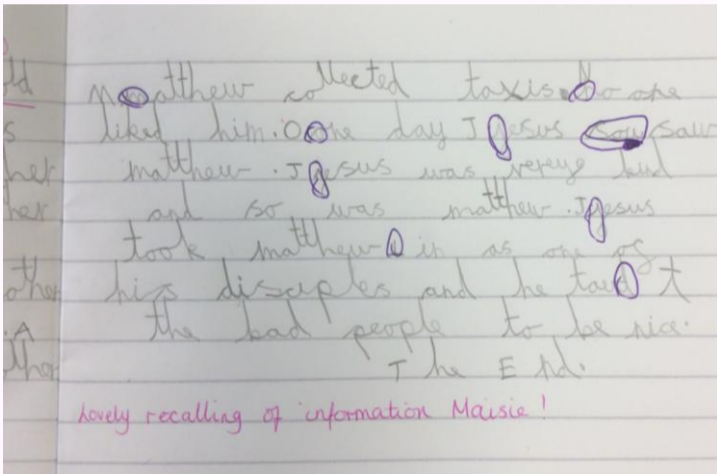 Matthew collected taxis. No one
liked him. One day Jesus saw
matthew. Jesus was
and so was matthew. Jesus
took matthew in as one of
his disciples and he
the bad people to be nice.
The End.
Lovely recalling of information Maisie!